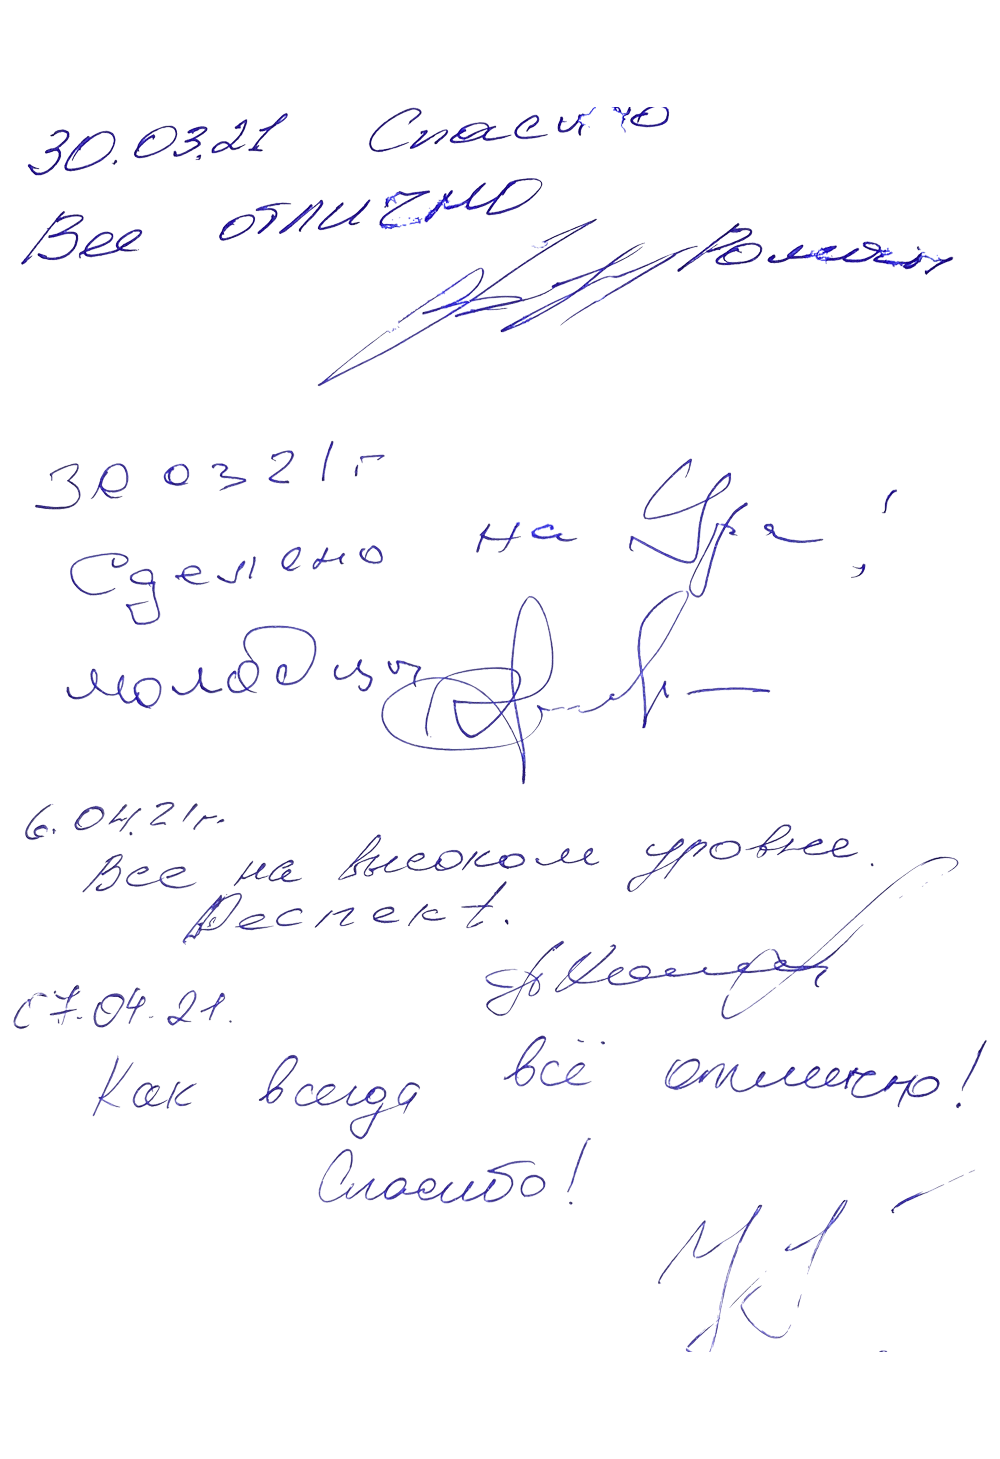 30.03.21 Спасибо
Все отлично
Роман
30 03 21 г
Сделано на Ура!
молодцы
6.04.21г.
Все на высоком уровне.
Респект.
07.04.21.
Как всегда всё отлично!
Спасибо!